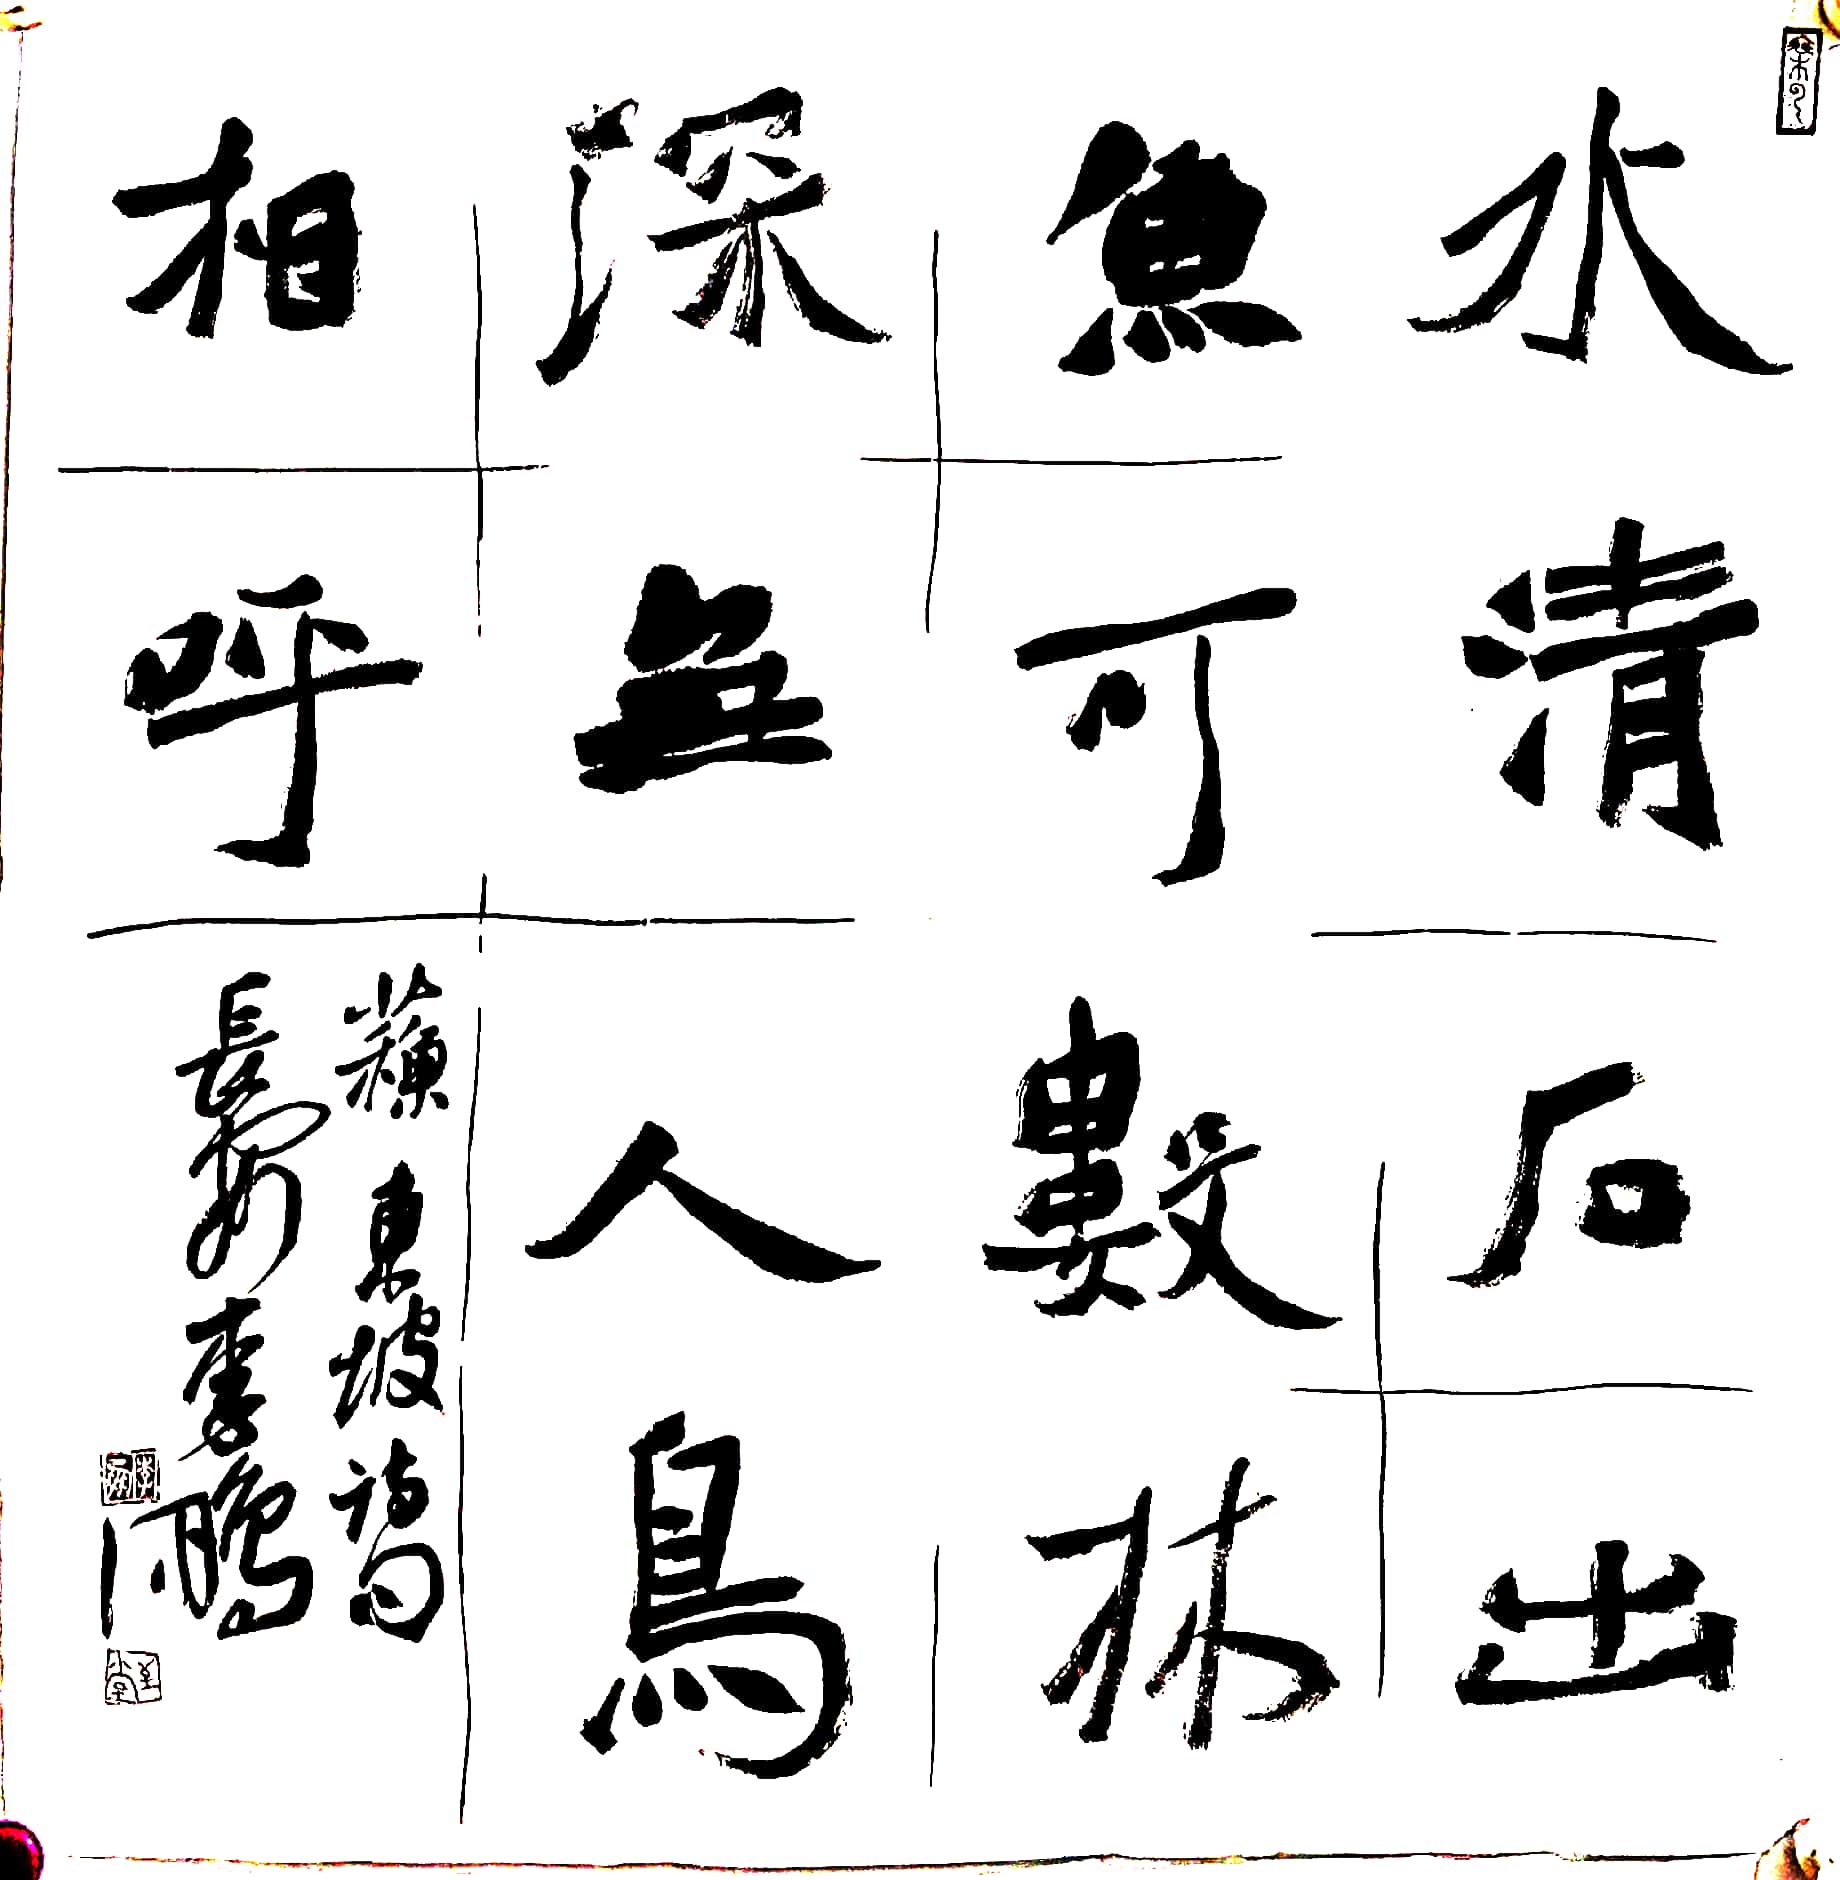 水清石出
魚可數林
深無人鳥
相呼
蘇東坡詩句
長安李鵬